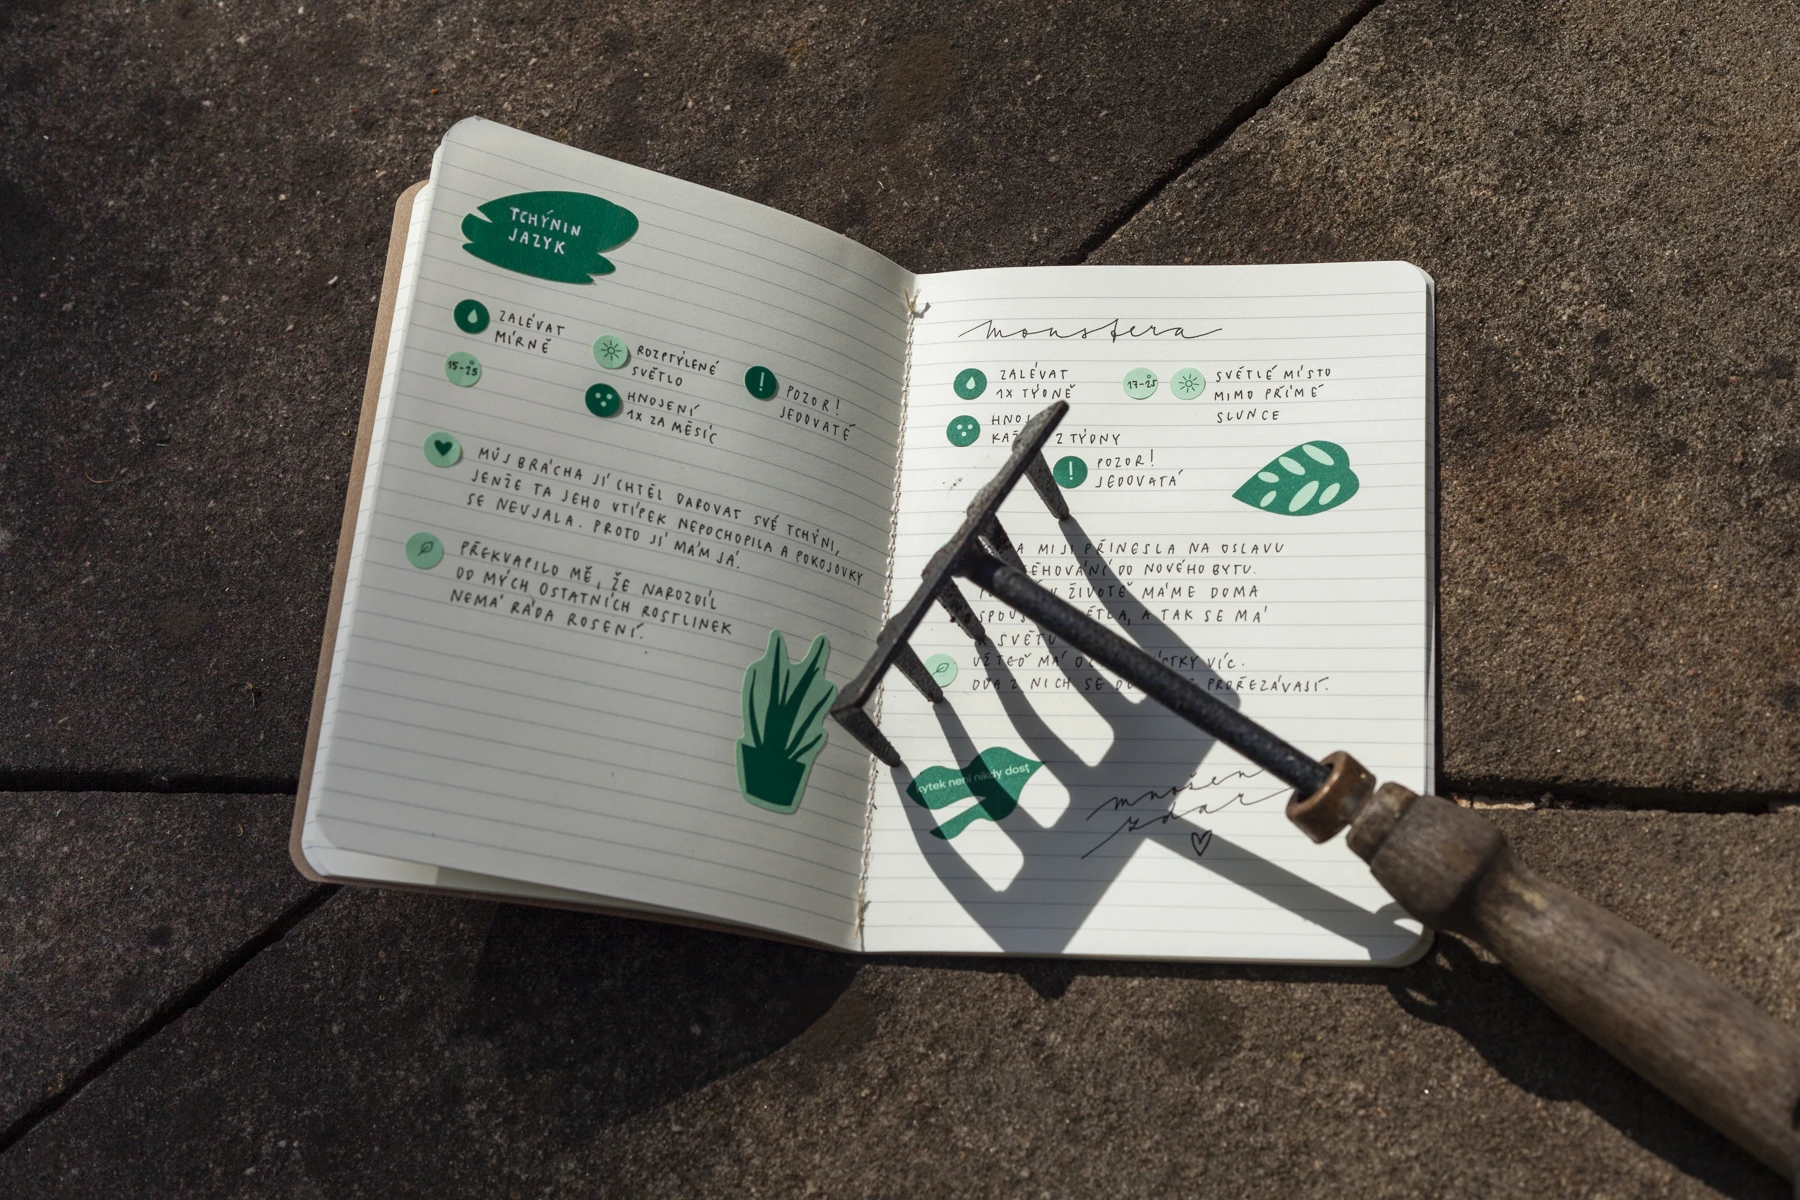 TCHÝNIN
JAZYK
ZALÉVAT
MÍRNĚ
15-25
ROZPTÝLENÉ
SVĚTLO
HNOJENÍ
1X ZA MĚSÍC
POZOR!
JEDOVATÉ
MŮJ BRÁCHA JÍ CHTĚL DAROVAT SVÉ TCHÝNI,
JENŽE TA JEHO VTÍPEK NEPOCHOPILA A POKOJOVKY
SE NEUJALA. PROTO JÍ MÁM JÁ.
PŘEKVAPILO MĚ, ŽE NAROZDÍL
OD MÝCH OSTATNÍCH ROSTLINEK
NEMÁ RÁDA ROSENÍ.
monstera
ZALÉVAT
1X TÝDNĚ
17-25
SVĚTLÉ MÍSTO
MIMO PŘÍMÉ
SLUNCE
2 TÝDNY
POZOR!
JEDOVATÁ
MI JI PŘINESLA NA OSLAVU
DO NOVÉHO BYTU.
V ŽIVOTĚ MÁME DOMA
A TAK SE MÁ
K SVĚTU
UŽ TEĎ MÁ VÍC.
DVA Z NICH SE PROŘEZÁVAJÍ.
není nikdy dost
množení
zdar